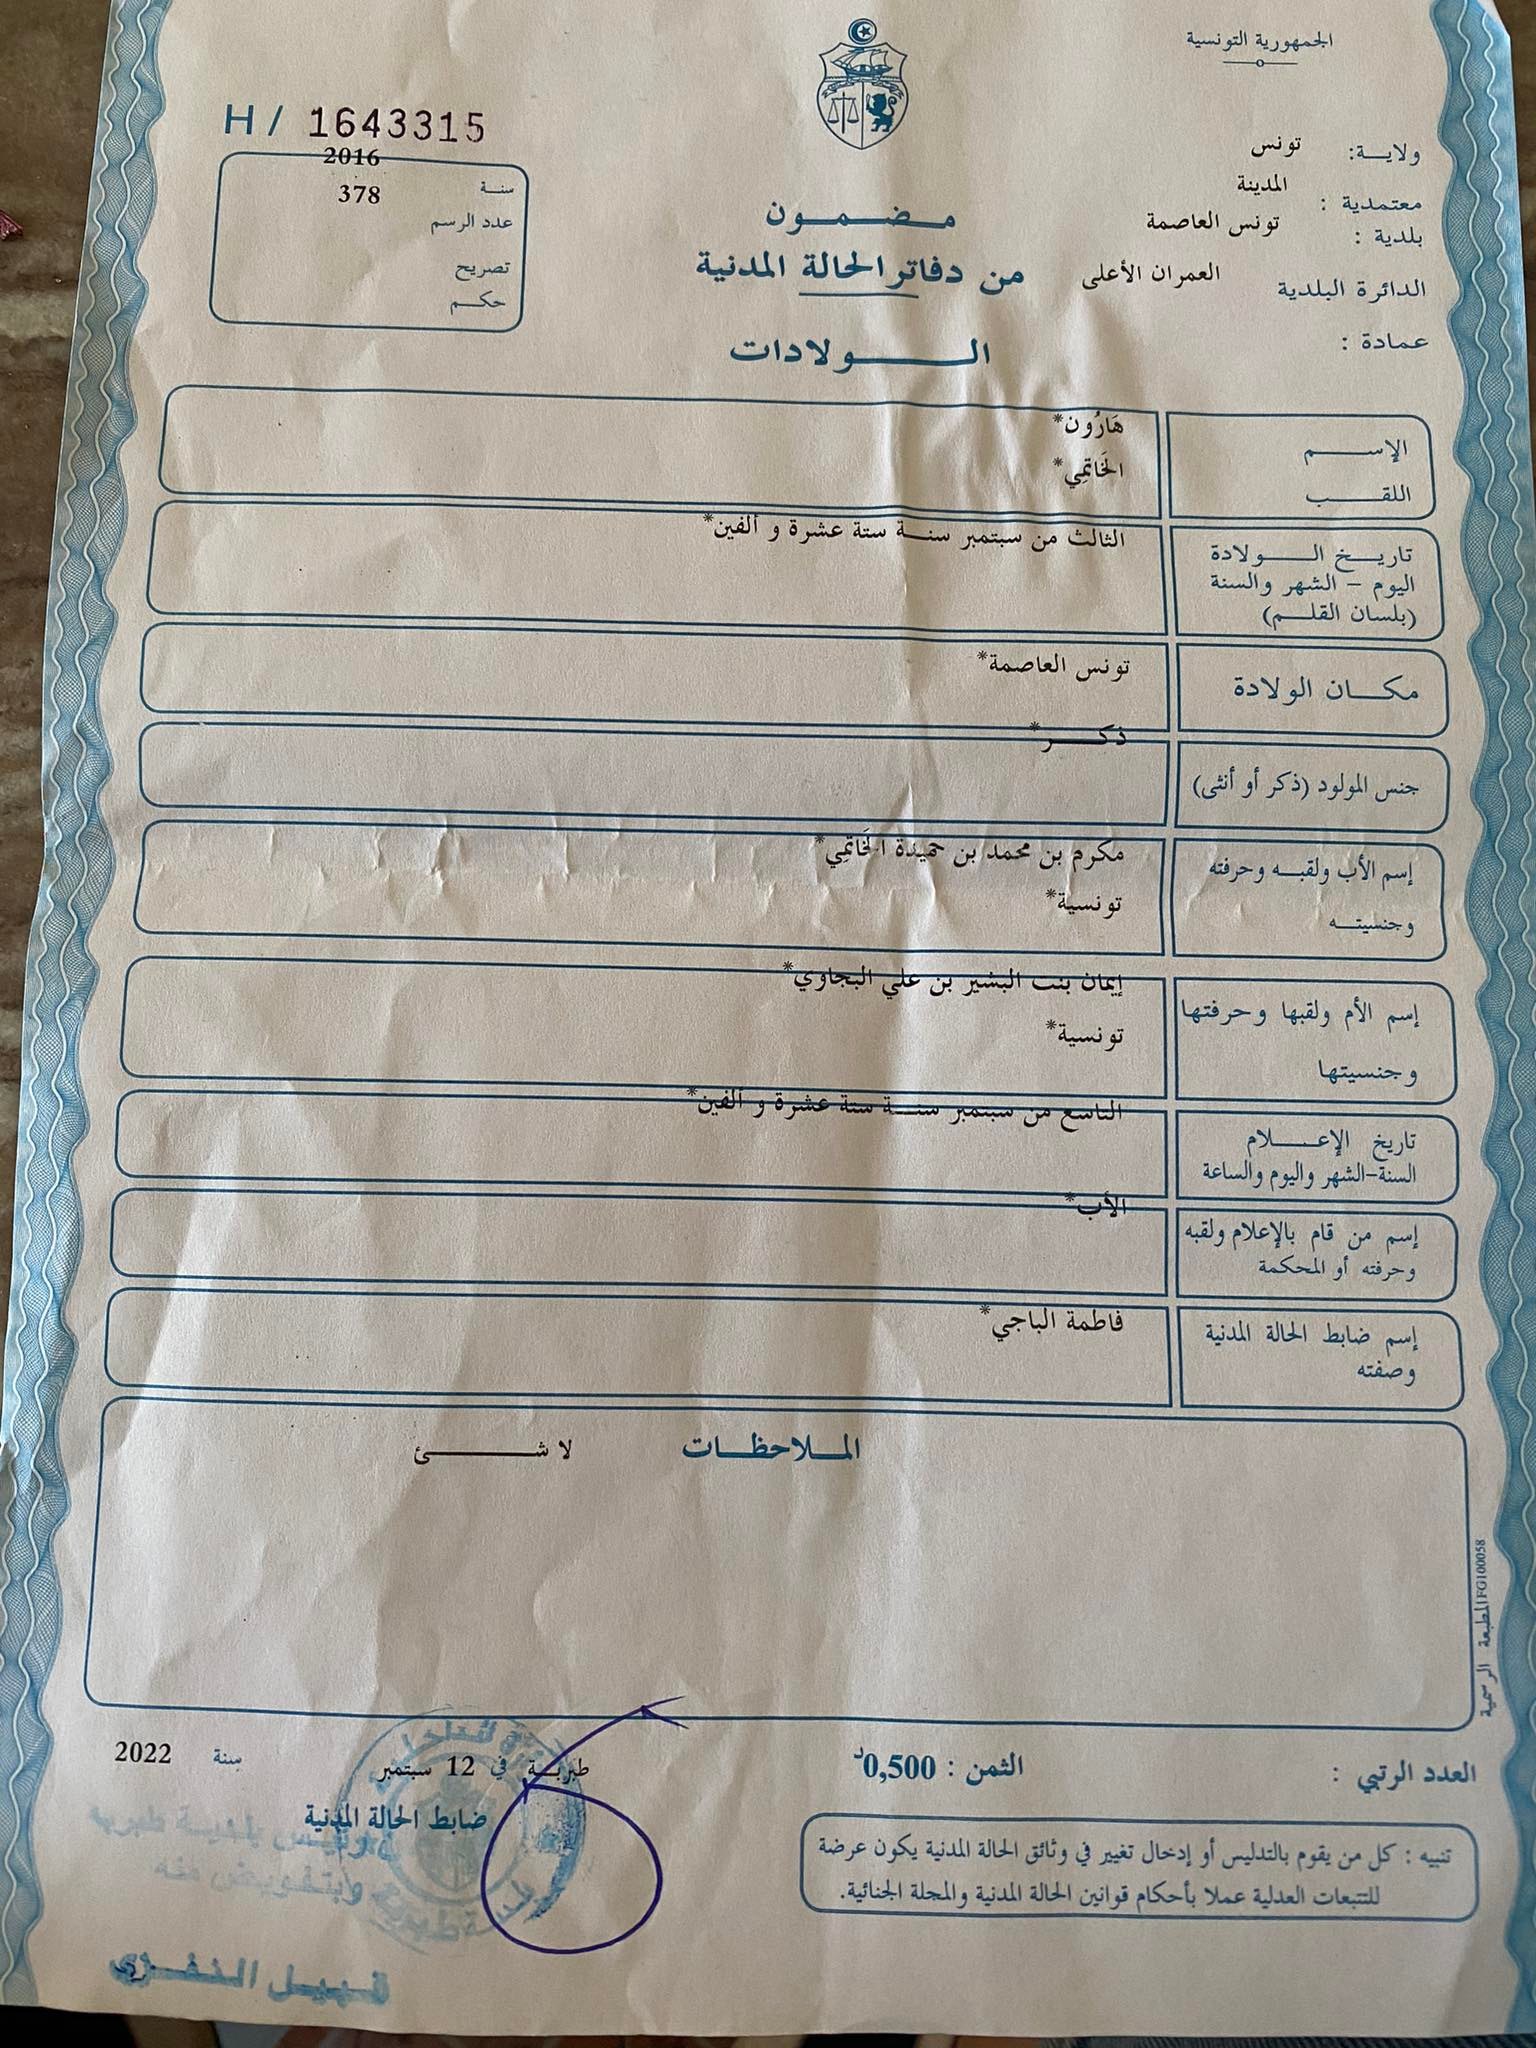 الجمهورية التونسية
H / 1643315
ولايــة: تونس
معتمدية : المدينة
بلدية : تونس العاصمة
الدائرة البلدية العمران الأعلى
عمادة :
2016
سنـة
378
عدد الرسم
تصريح
حكـم
مـضـمـون
من دفاتر الحالة المدنية
الــولادات
الإســـم هَارُون*
اللقـــب الخَاتمِي*
تاريــخ الــولادة الثالث من سبتمبر سنــة ستة عشرة و ألفين*
اليوم – الشهر والسنة
(بلسان القلـم)
مكــان الولادة تونس العاصمة*
جنس المولود (ذكر أو أنثى) ذكـــر*
إسم الأب ولقبــه وحرفته مكرم بن محمد بن حميدة الخَاتمِي*
وجنسيتــه تونسية*
إسم الأم ولقبها وحرفتها إيمان بنت البشير بن علي البجاوي*
وجنسيتها تونسية*
تاريخ الإعـــلام التاسع من سبتمبر سنــة ستة عشرة و ألفين*
السنة-الشهر واليوم والساعة
إسم من قام بالإعلام ولقبه الأب*
وحرفته أو المحكمة
إسم ضابط الحالة المدنية فاطمة الباجي*
وصفته
الملاحظــات لا شـــــئ
المطبعة الرسمية FG100058
العدد الرتبي :
الثمن : 0,500د
طبربـة في 12 سبتمبر سنة 2022
ضابط الحالة المدنية
تنبيه : كل من يقوم بالتدليس أو إدخال تغيير في وثائق الحالة المدنية يكون عرضة
للتتبعات العدلية عملا بأحكام قوانين الحالة المدنية والمجلة الجنائية.
وبتفويض منه